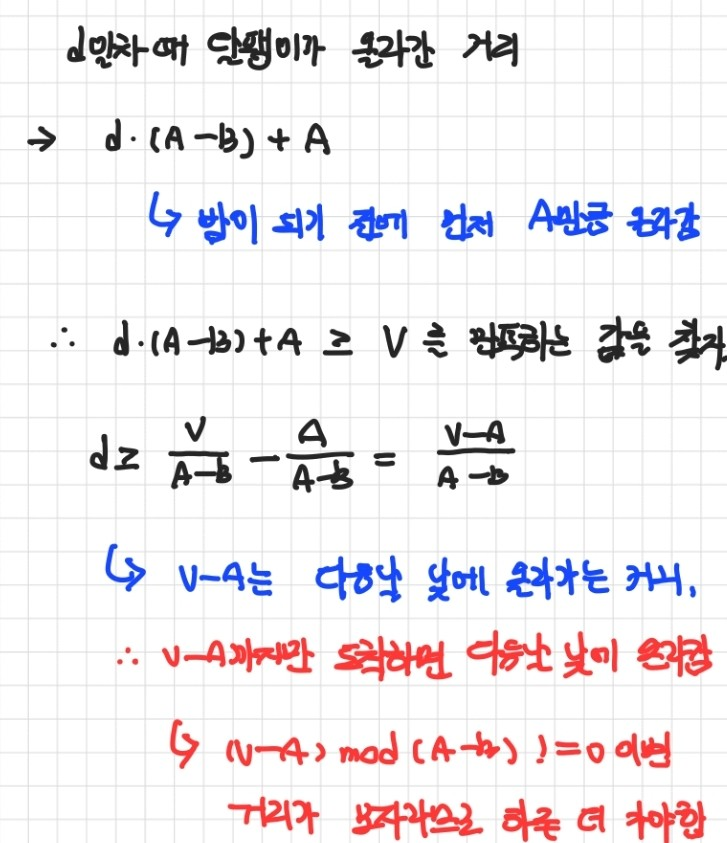 d일차 때 달팽이가 올라간 거리
→ d·(A-B) + A
↳ 밤이 되기 전에 먼저 A만큼 올라감
∴ d·(A-B)+A ≥ V 를 만족하는 값을 찾자
d≥ V/(A-B) - A/(A-B) = (V-A)/(A-B)
↳ V-A는 다음날 낮에 올라가는 거리,
∴ V-A까지만 도착하면 다음날 낮에 올라감
↳ (V-A) mod (A-B) != 0 이면
거리가 모자라므로 하루 더 가야함